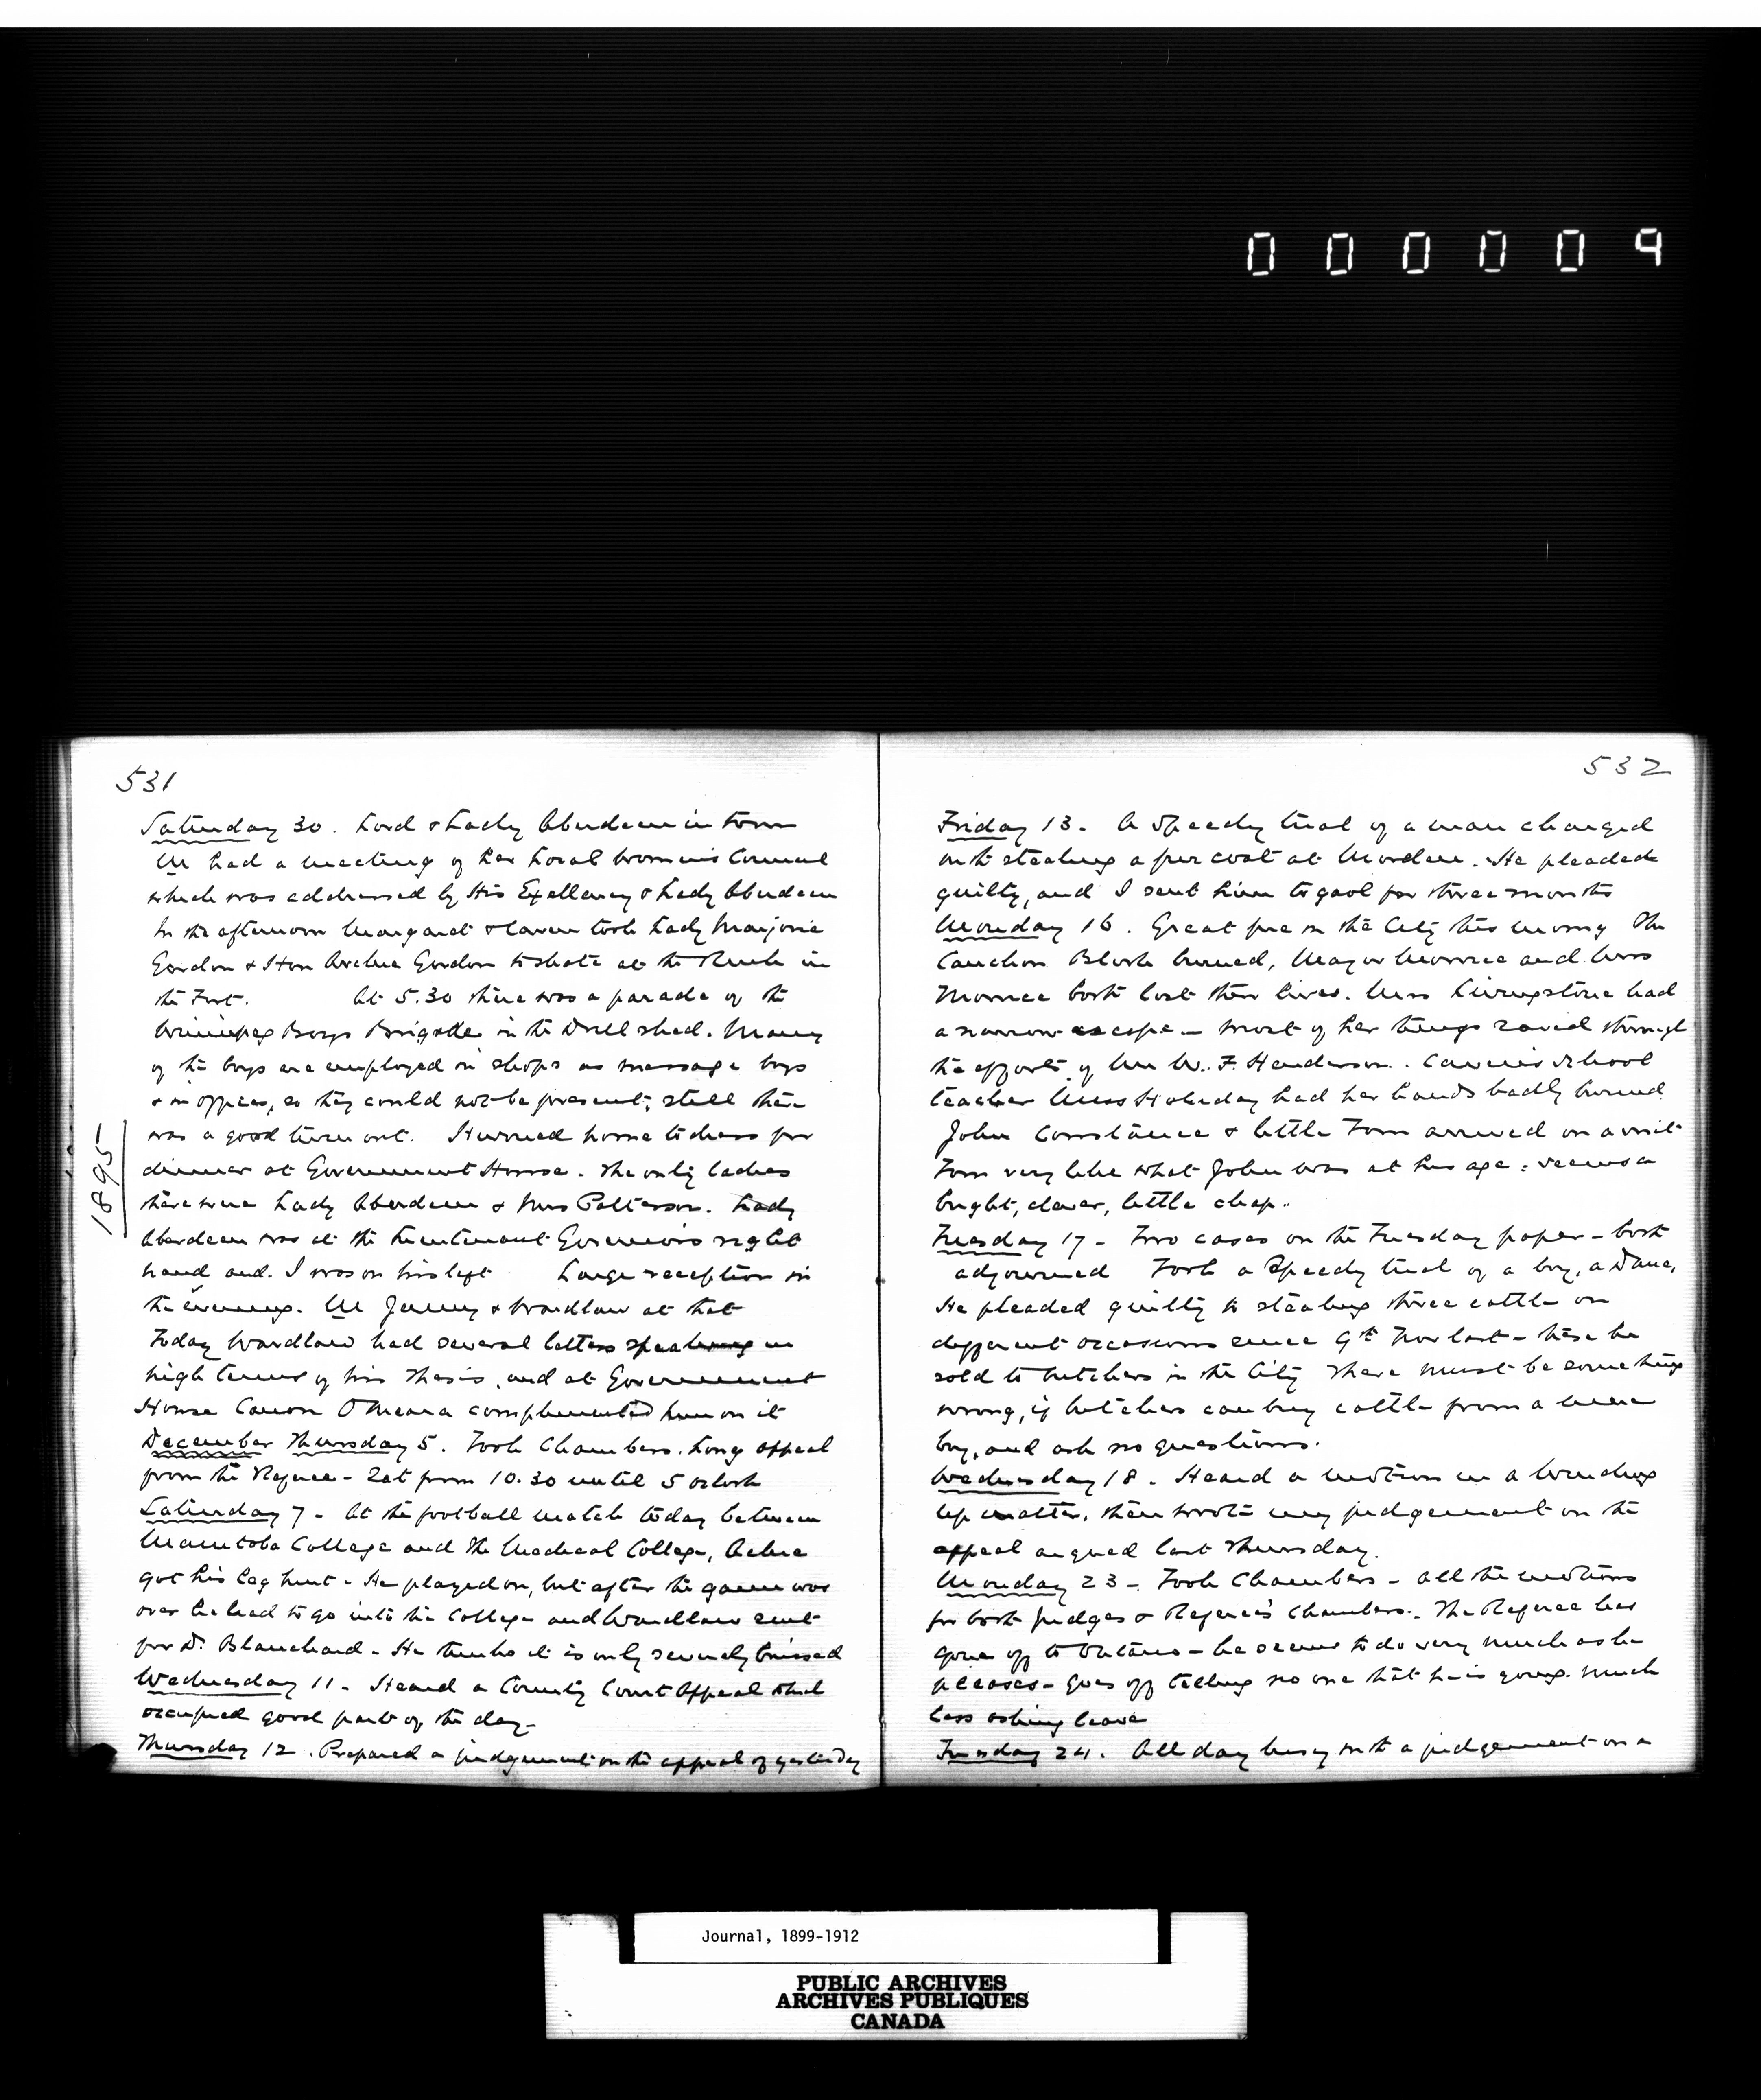 000009
531
Saturday 30. Lord & Lady Aberdeen in town
M had a meeting of her Local Women's Council
which was addressed by His Exellency & Lady Aberdeen
In the afternoon Margaret & Lawen took Lady Marjorie
Gordon & Hon Archie Gordon to skate at the Rink in
the Fort. At 5.30 there was a parade of the
Winnipeg Boys Brigade in the Drill shed. Many
of the boys are employed in shops as message boys
& in offices, so they could not be present; still there
was a good turn out. Hurried home to dress for
dinner at Government House. The only ladies
there were Lady Aberdeen & Mrs Patterson. Lady
Aberdeen was at the Lieutenant Governor's right
hand and. I was on his left Large reception in
the evening. M Jenny & Wardlaw at that
Today Wardlaw had several letters speaking in
high terms of his Thesis, and at Government
House Canon O'Meara complimented him on it
1895
December Thursday 5. Took Chambers. Long appeal
from the Referee - Sat from 10.30 until 5 oclock
Saturday 7 - At the football match today between
Manitoba College and the Medical College, Archie
got his leg hurt - He played on, but after the game was
over he had to go into the College and Wardlaw sent
for Dr. Blanchard - He thinks it is only severely bruised
Wednesday 11 - Heard a County Court Appeal that
occupied good part of the day -
Thursday 12. Prepared a judgement on the appeal of yesterday
532
Friday 13. A Speedy trial of a man charged
with stealing a fur coat at Morden. He pleaded
guilty, and I sent him to gaol for three months
Monday 16. Great fire in the City this morng The
Cauchon Block burned, Major Morrice and Mrs
Morrice both lost their lives. Mrs Livingstone had
a narrow escape - most of her things saved through
the efforts of Mr W. F. Henderson. school
teacher Miss Holiday had her hands badly burned
John Constance & little Tom arrived on a visit
Tom very like what John was at his age: seems a
bright, clever, little chap.
Tuesday 17 - Two cases on the Tuesday paper - both
adjourned Took a Speedy trial of a boy, a Dane,
He pleaded guilty to stealing three cattle on
different occasions since 9th Nov last - these he
sold to butchers in the City There must be something
wrong, if butchers can buy cattle from a mere
boy, and ask no questions.
Wednesday 18. Heard a motion in a Winding
Up matter, then wrote my judgement on the
appeal argued last Thursday.
Monday 23 - Took Chambers - all the motions
for both Judges & Referee's Chambers. The Referee has
gone off to Ontario - he seems to do very much as he
pleases - goes off telling no one that he is going. much
less asking leave
Tuesday 24. All day busy with a judgement on a
Journal, 1899-1912
PUBLIC ARCHIVES
ARCHIVES PUBLIQUES
CANADA